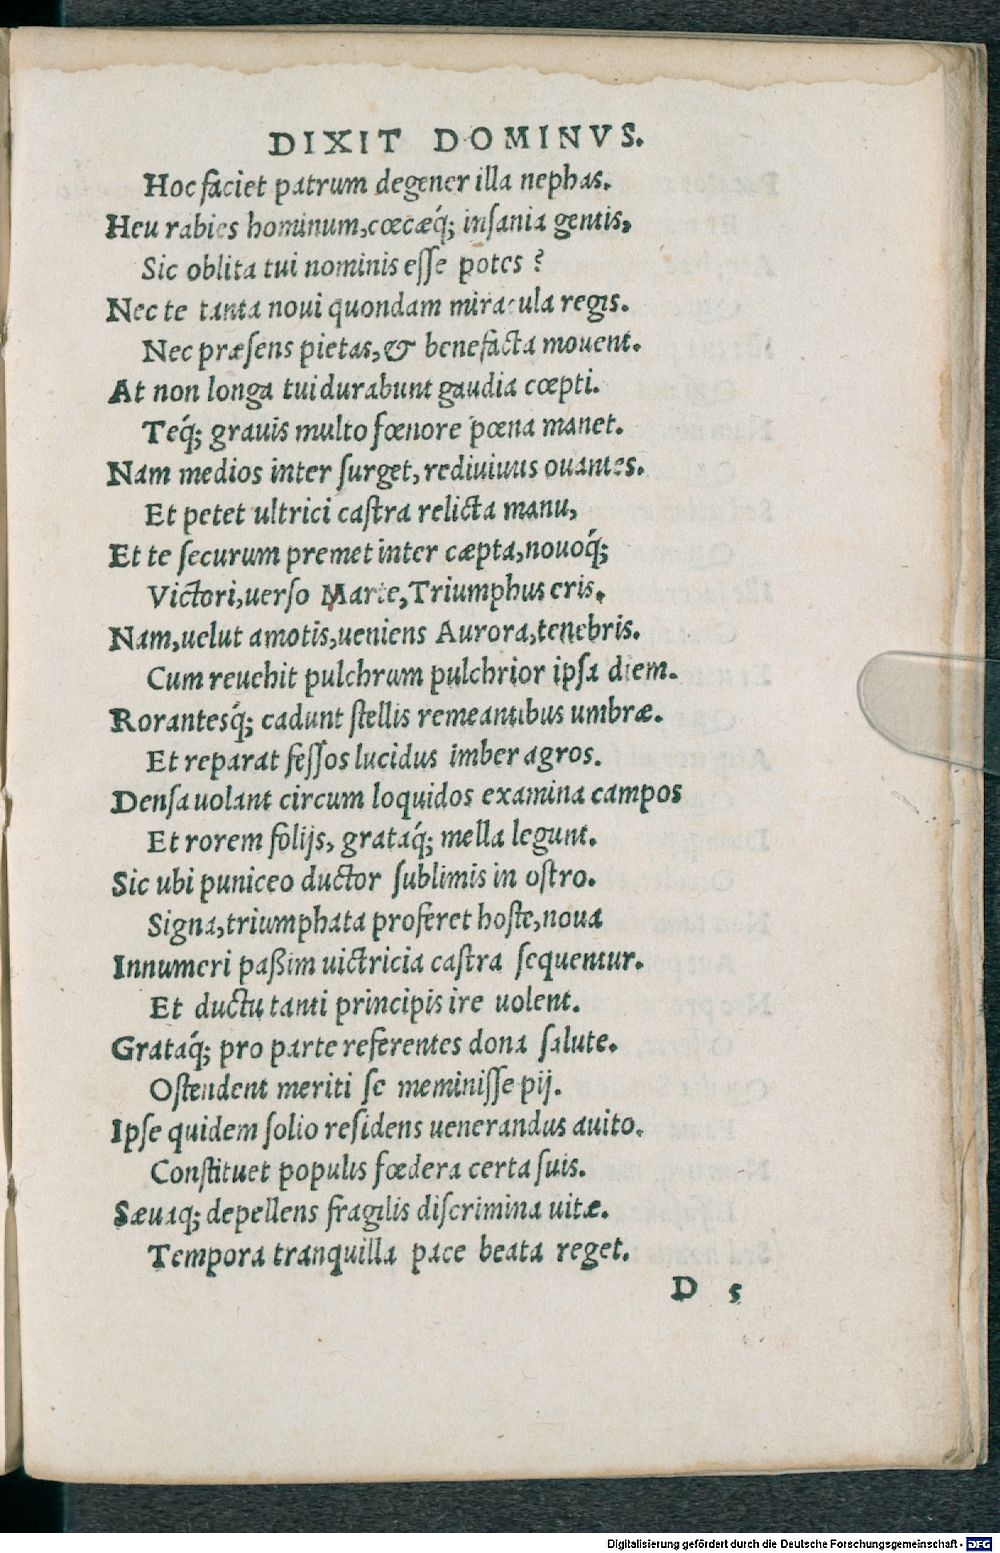 DIXIT DOMINVS.
Hoc faciet patrum degener illa nephas.
Heu rabies hominum, cœcæq́; insania gentis,
Sic oblita tui nominis esse potes ?
Nec te tanta noui quondam miracula regis.
Nec præsens pietas, & benefacta mouent.
At non longa tui durabunt gaudia cœpti.
Teq́; grauis multo fœnore pœna manet.
Nam medios inter surget, rediuiuus ouantes.
Et petet ultrici castra relicta manu,
Et te securum premet inter cæpta, nouoq́;
Victori, uerso Marte, Triumphus eris.
Nam, uelut amotis, ueniens Aurora, tenebris.
Cum reuehit pulchrum pulchrior ipsa diem.
Rorantesq́; cadunt stellis remeantibus umbræ.
Et reparat fessos lucidus imber agros.
Densa uolant circum loquidos examina campos
Et rorem folijs, grataq́; mella legunt.
Sic ubi puniceo ductor sublimis in ostro.
Signa, triumphata proferet hoste, noua
Innumeri paßim uictricia castra sequentur.
Et ductu tanti principis ire uolent.
Grataq́; pro parte referentes dona salute.
Ostendent meriti se meminisse pij.
Ipse quidem solio residens uenerandus auito.
Constituet populis fœdera certa suis.
Sæuaq; depellens fragilis discrimina uitæ.
Tempora tranquilla pace beata reget.
D 5
Digitalisierung gefördert durch die Deutsche Forschungsgemeinschaft - DFG